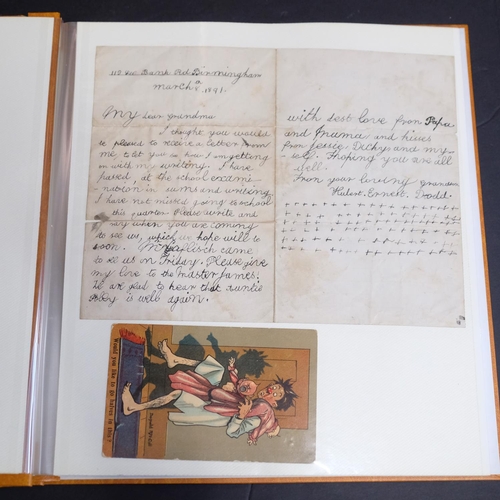 Bank Rd Birmingham
March 1891.
My dear grandma
I thought you would
be pleased to receive a letter from
me, to let you see how I am getting
on with my writing. I have
passed, at the school exami-
nation in sums and writing
I have not missed going to school
this quarter Please write and
say when you are coming
to see us, which we hope will be
soon. came
to see us on Friday. Please give
my love to the Master James.
We are glad to hear that auntie
is well again.
with best love from Papa
and Mama and kisses
from Jessie and my-
self. Hoping you are all
well.
From your loving grandson
Hubert Ernest Dodd.
Would you like to go halves in this?